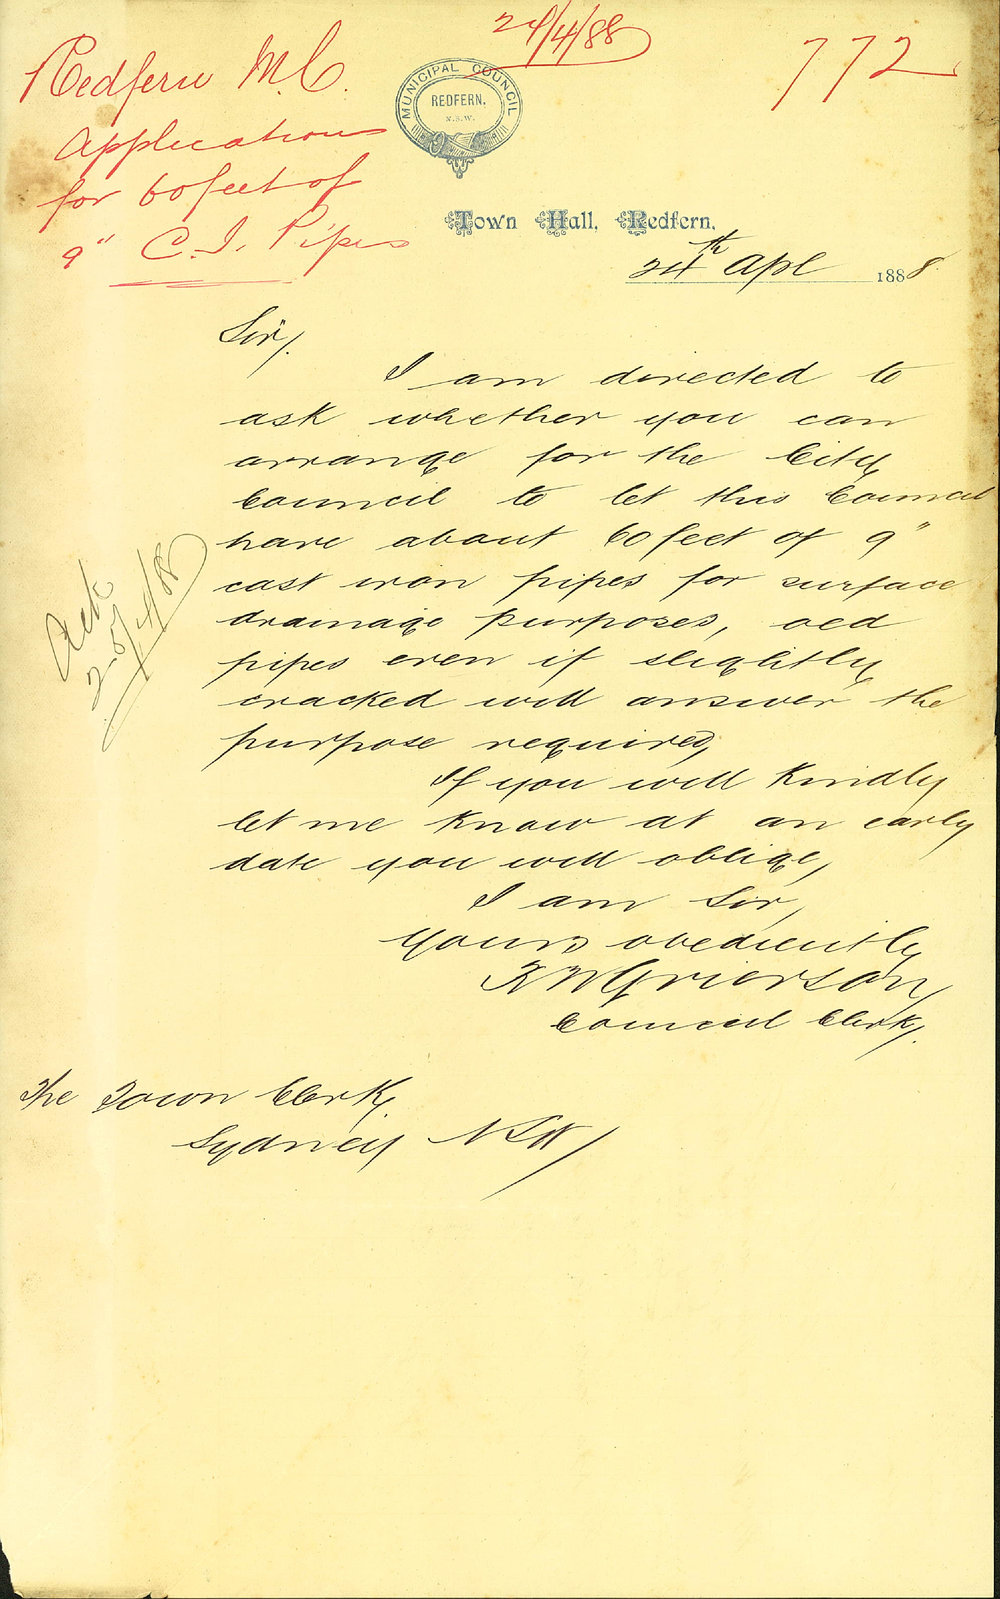 24/4/88
772
Redfern M.C.
Application
for 60 feet of
9" C.I. Pipes
MUNICIPAL COUNCIL
REDFERN.
N.S.W.
Town Hall, Redfern.
24th Apl 1888
Sir,
I am directed to
ask whether you can
arrange for the City
Council to let this Council
have about 60 feet of 9"
cast iron pipes for surface
drainage purposes, old
pipes even if slightly
cracked will answer the
purpose required,
If you will kindly
let me know at an early
date you will oblige,
I am Sir,
Yours obediently
Grierson
Council Clerk.
Ack
25/4/88
The Town Clerk,
Sydney NSW